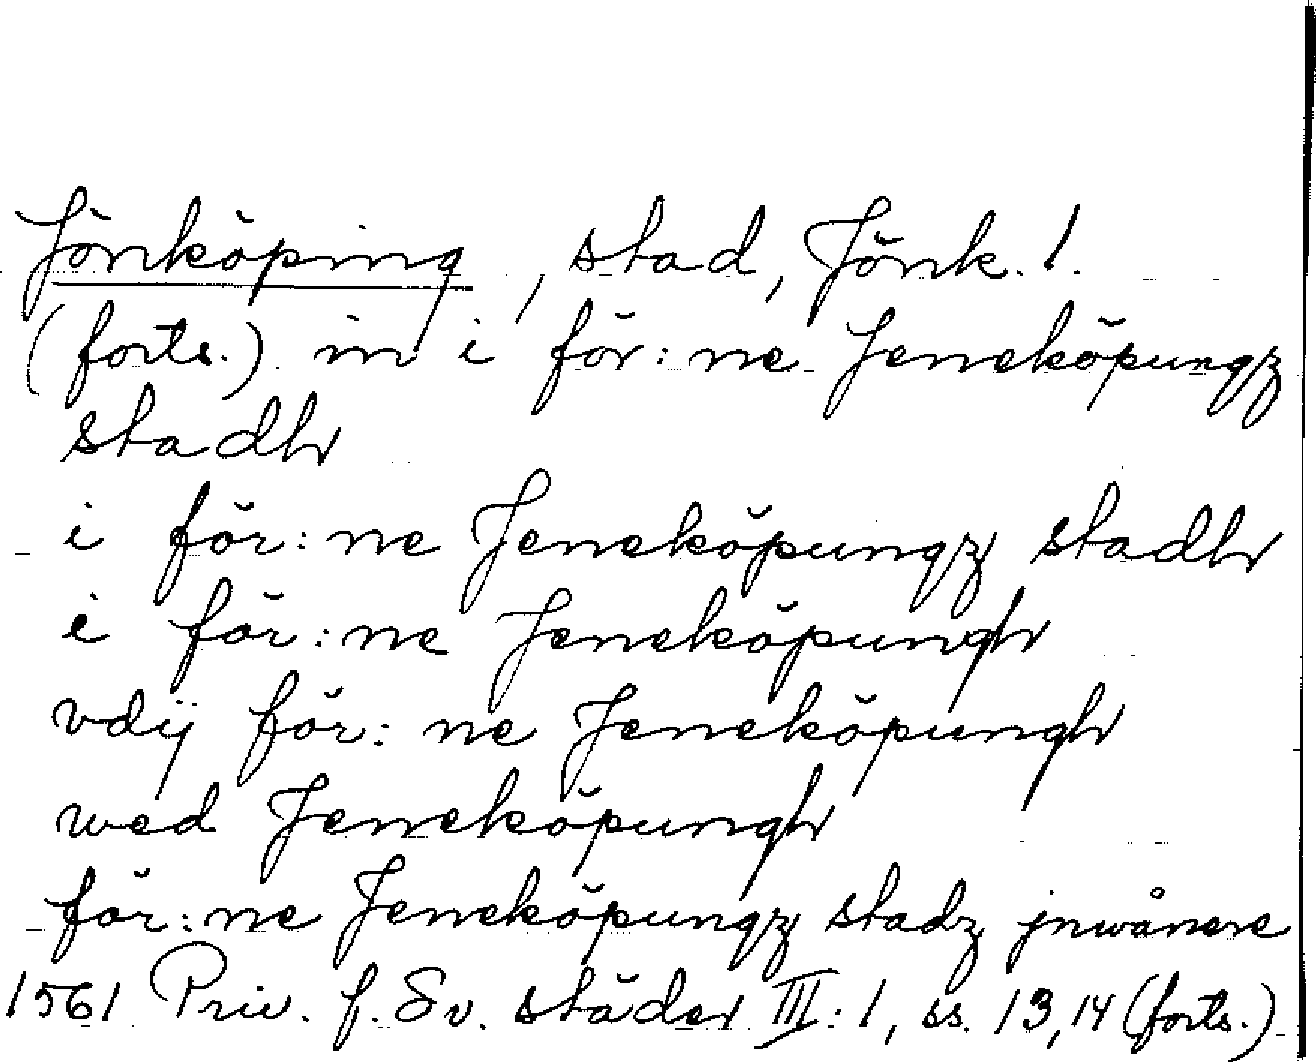 Jönköping, stad, Jönk. l.
(forts.) in i för:ne Jeneköpungz
stadh
i för:ne Jeneköpungz stadh
i för:ne Jeneköpungh
vdij för:ne Jeneköpungh
wed Jeneköpungh
för:ne Jeneköpungz stadz jnwånere
1561 Priv. f. Sv. städer III:1, ss. 13,14 (forts.)